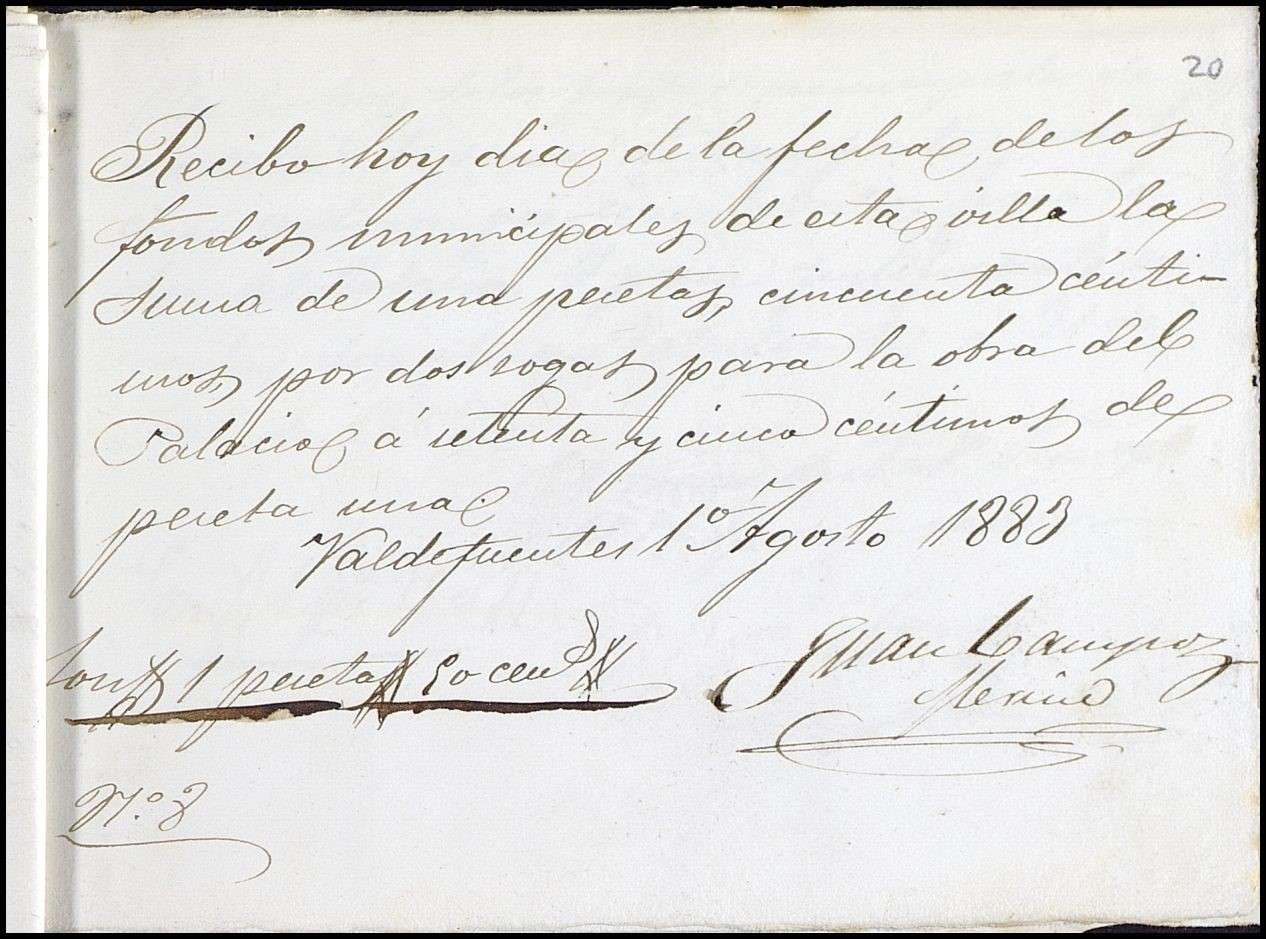 20
Recibo hoy dia de la fecha de los
fondos municipales de esta villa la
suma de una pesetas, cincuenta cénti-
mos, por dos sogas para la obra del
Palacio á setenta y cinco céntimos de
peseta una.
Valdefuentes 1º Agosto 1883
Son 1 peseta 50 cen.s
Juan Campos
Merino
N.o 8